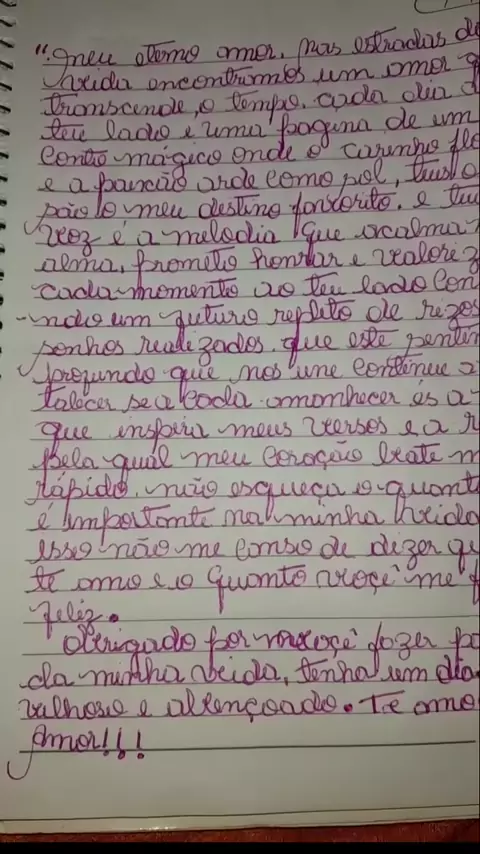 "meu eterno amor, nas estradas d
vida encontramos um amor q
transcende, o tempo. cada dia a
teu lado e uma pagina de um
conto mágico onde o carinho flo
e a paixão arde como sol, teus o
são o meu destino favorito. e tu
voz é a melodia que acalma
alma, prometo honrar e valoriz
cada momento ao teu lado con
-ndo um futuro repleto de rizos
sonhos realizados. que este sentim
profundo que nos une continue a
talecer se a cada amanhecer és a
que inspira meus versos e a r
pela qual meu coração bate m
rápido. não esqueça o quant
é importante na minha vida
isso não me canso de dizer qu
te amo e o quanto você me f
feliz.
Obrigado por você fazer pa
da minha vida, tenha um dia
valhoso e abençoado. Te amo
Amor!!!